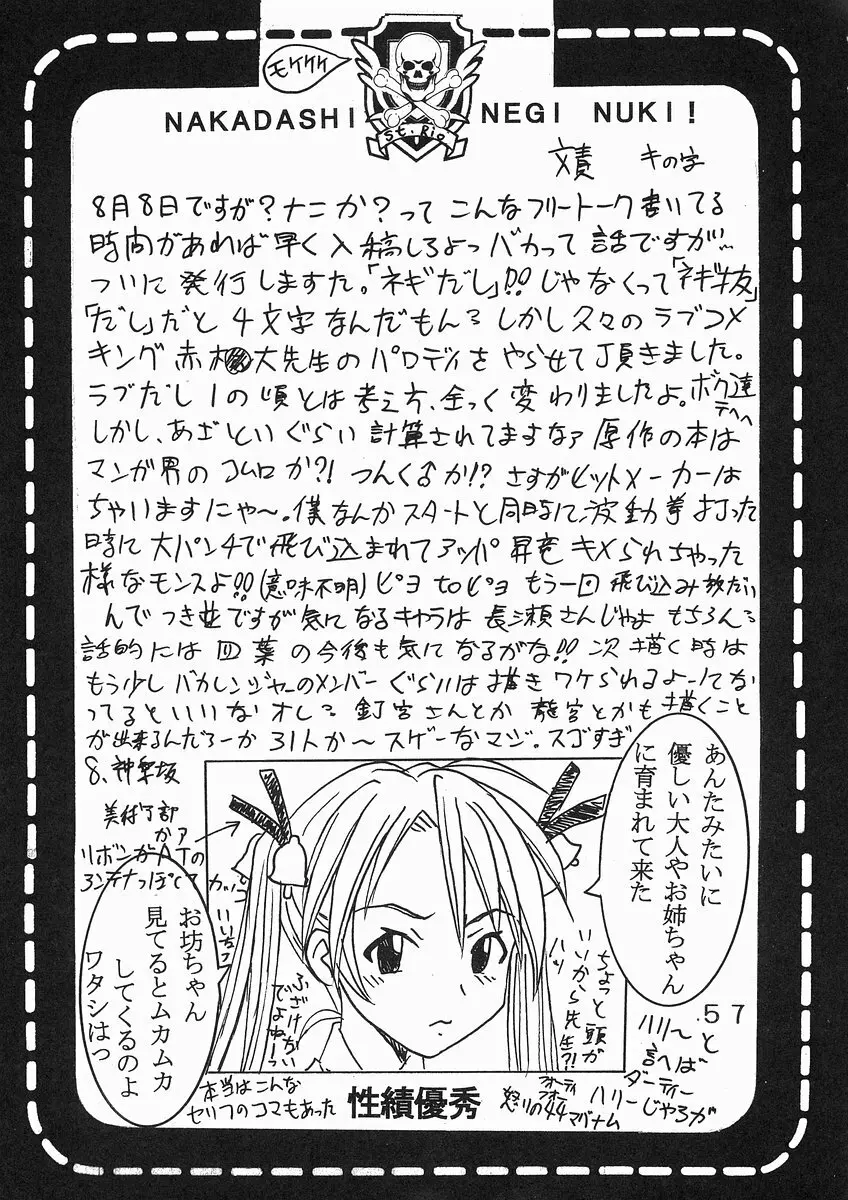 モケケケ
NAKADASHI NEGI NUKI!
St. Rio
文責 キの字
8月8日ですが?ナニか?って こんなフリートーク書いてる
時間があれば早く入稿しろよっバカって話ですが…
ついに発行しますた。「ネギだし」!!じゃなくって「ネギ抜」
「だし」だと4文字なんだもん しかし久々のラブコメ
キング赤松大先生のパロディをやらせて頂きました。
ラブだし1の頃とは考え方、全っく変わりましたよ。ボク達
テヘヘ
しかし、あざといぐらい計算されてますなァ原作の本は
マンガ界のコムロか?!つんく♂か!?さすがヒットメーカーは
ちゃいますにゃ〜。僕なんかスタートと同時に波動拳打った
時に大パンチで飛び込まれてアッパ昇竜キメられちゃった
様なモンスよ!!(意味不明)ピヨtoピヨもう一回飛び込み放だい
んでつき並ですが気になるキャラは長瀬さんじゃよもちろん
話的には四葉の今後も気になるがな!!次描く時は
もう少しバカレンジャーのメンバーぐらいは描きワケられるよーにな
ってるといいなオレ 釘宮さんとか龍宮とかも描くこと
が出来るんだろーか31人か〜スゲーなマジ。スゴすぎ
8、神楽坂
美術部
かァ
リボンがATの
アンテナっぽくて
カッコ
いいな
あんたみたいに
優しい大人やお姉ちゃん
に育まれて来た
お坊ちゃん
見てるとムカムカ
してくるのよ
ワタシはっ
ちょっと頭が
いいから先生?!
ハッ
ふざけない
でよねーっ
本当はこんな
セリフのコマもあった
性績優秀
57
ハリーと
言へば
ダーティー
ハリーじゃろが
怒りの44マグナム
フォーティ
フォー